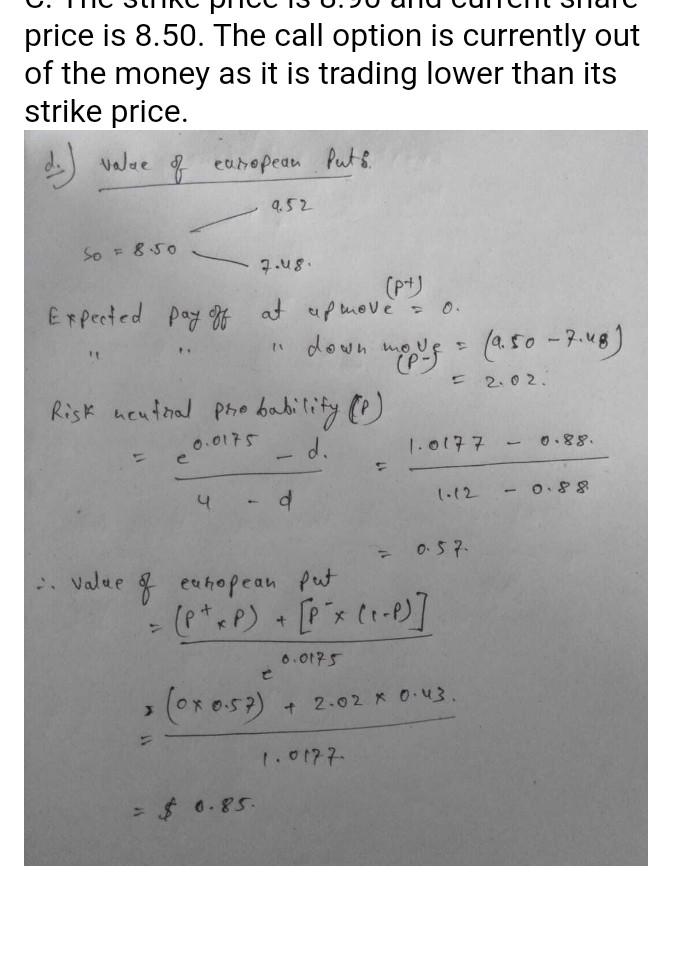 C. The strike price is 8.90 and current share
price is 8.50. The call option is currently out
of the money as it is trading lower than its
strike price.
d.) Value of european Puts.
9.52
So = 8.50
7.48.
(P+)
Expected pay off at upmove = 0.
" " " down move = (9.50 - 7.48)
(P-)
= 2.02.
Risk neutral probability (P)
= e^0.0175 - d. / u - d = 1.0177 - 0.88. / 1.12 - 0.88
= 0.57.
∴ Value of european put
= (P+ x P) + [P- x (1-P)]
e^0.0175
= (0 x 0.57) + 2.02 x 0.43.
1.0177.
= $ 0.85.